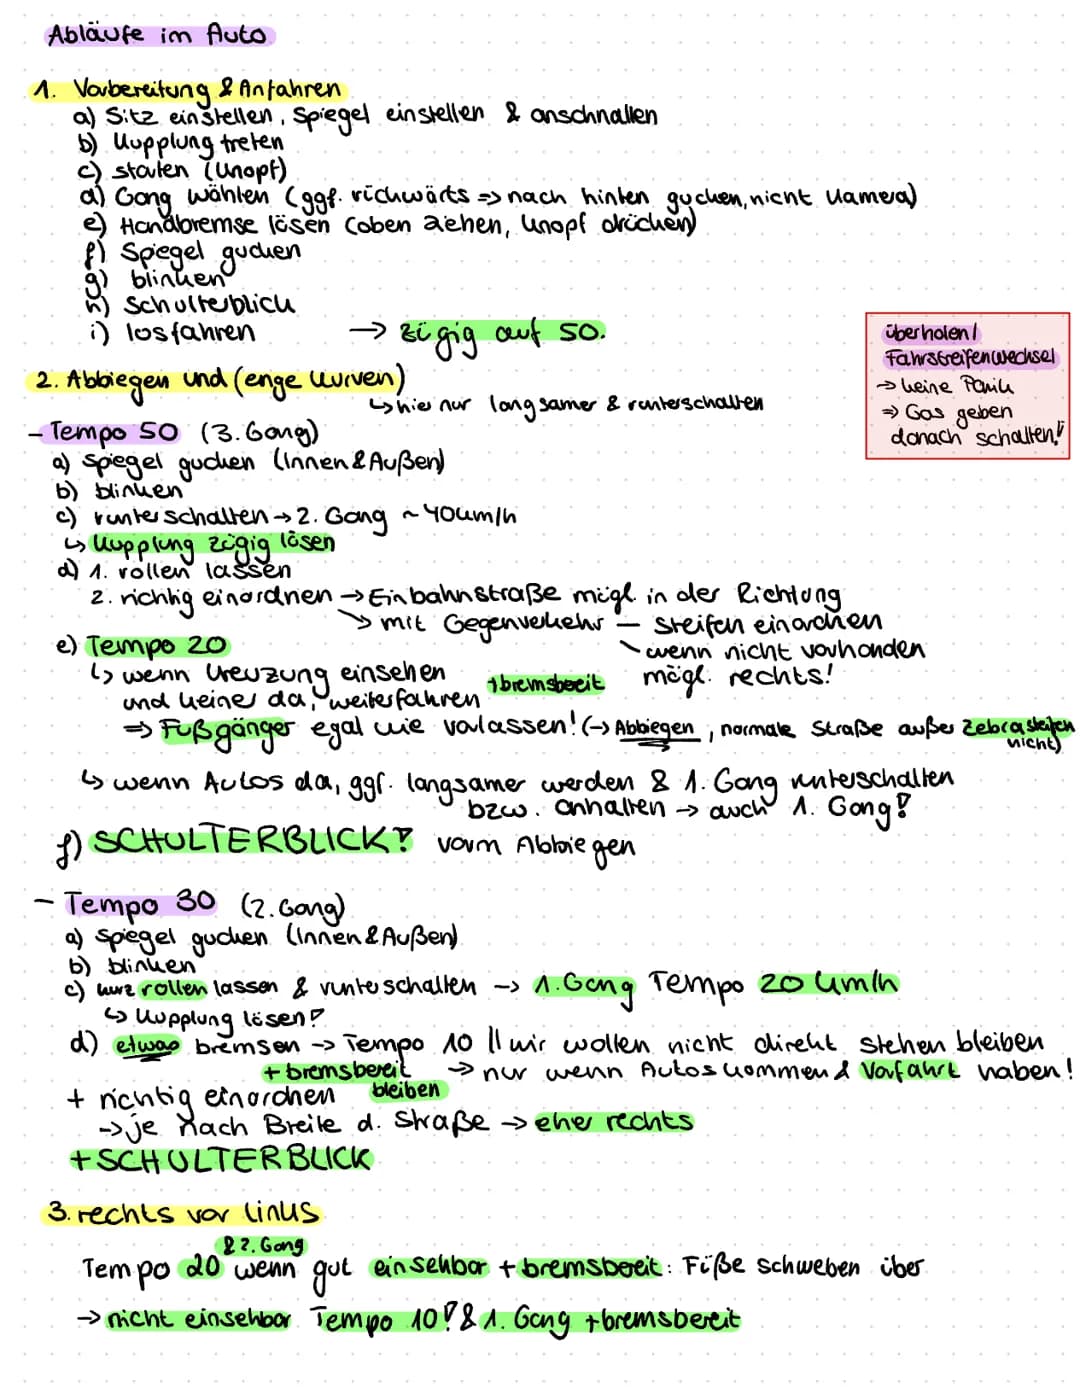 Abläufe im Auto
1. Vorbereitung & Anfahren
a) Sitz einstellen, Spiegel einstellen & anschnallen
b) Kupplung treten
c) starten (Knopf)
d) Gang wählen (ggf. rückwärts => nach hinten gucken, nicht Kamera)
e) Handbremse lösen (oben ziehen, Knopf drücken)
f) Spiegel gucken
g) blinken
h) Schulterblick
i) losfahren → zügig auf 50.
überholen/
Fahrstreifenwechsel
→ keine Panik
=> Gas geben
danach schalten!
2. Abbiegen und (enge Kurven)
↳ hier nur langsamer & runterschalten
- Tempo 50 (3. Gang)
a) Spiegel gucken (Innen & Außen)
b) blinken
c) runterschalten → 2. Gang ~ 40km/h
↳ Kupplung zügig lösen
d) 1. rollen lassen
2. richtig einordnen → Einbahnstraße mögl. in der Richtung
↘ mit Gegenverkehr — Streifen einordnen
wenn nicht vorhanden
mögl. rechts!
e) Tempo 20
↳ wenn Kreuzung einsehen
und keiner da, weiterfahren
+bremsbereit
=> Fußgänger egal wie vorlassen! (→ Abbiegen, normale Straße außer Zebrastreifen
nicht)
↳ wenn Autos da, ggf. langsamer werden & 1. Gang runterschalten
bzw. anhalten → auch 1. Gang!
f) SCHULTERBLICK! vorm Abbiegen
- Tempo 30 (2. Gang)
a) Spiegel gucken (Innen & Außen)
b) blinken
c) kurz rollen lassen & runterschalten -> 1. Gang Tempo 20 km/h
↳ Kupplung lösen!
d) etwas bremsen -> Tempo 10 || wir wollen nicht direkt stehen bleiben
+ bremsbereit
bleiben
→ nur wenn Autos kommen & Vorfahrt haben!
+ richtig einordnen
→ je nach Breite d. Straße → eher rechts
+ SCHULTERBLICK
3. rechts vor links
& 2. Gang
Tempo 20 wenn gut einsehbar + bremsbereit: Füße schweben über
→ nicht einsehbar Tempo 10! & 1. Gang + bremsbereit